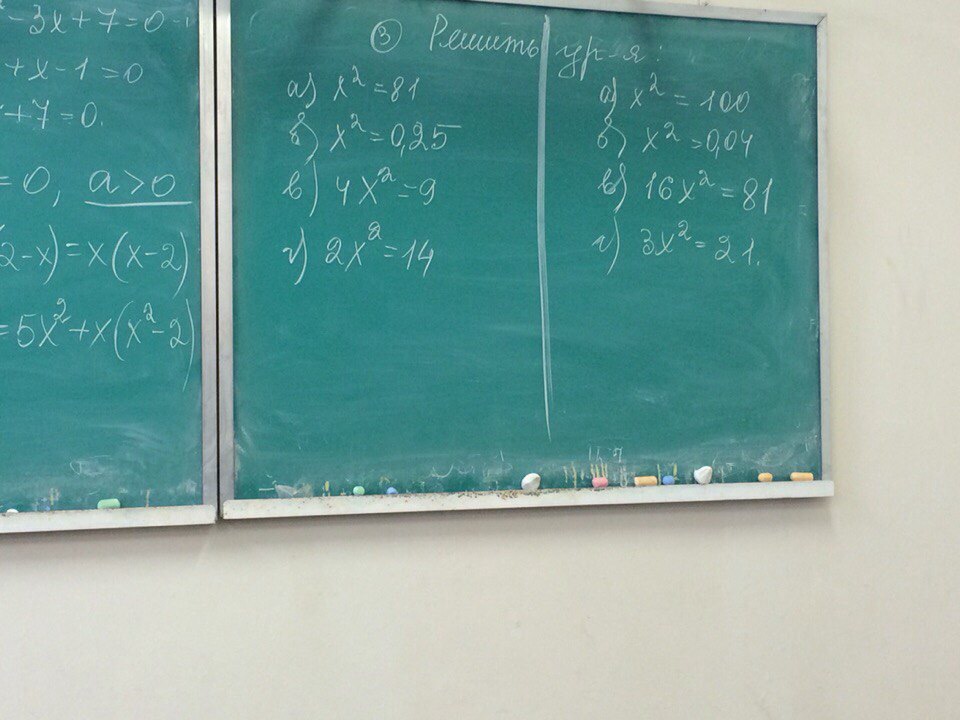 - 3x + 7 = 0
+ x - 1 = 0
+ 7 = 0.
= 0, a > 0
2 - x) = x(x - 2)
= 5x² + x(x² - 2)
③ Решить ур-я:
а) x² = 81
б) x² = 0,25
в) 4x² = 9
г) 2x² = 14
а) x² = 100
б) x² = 0,04
в) 16x² = 81
г) 3x² = 21.